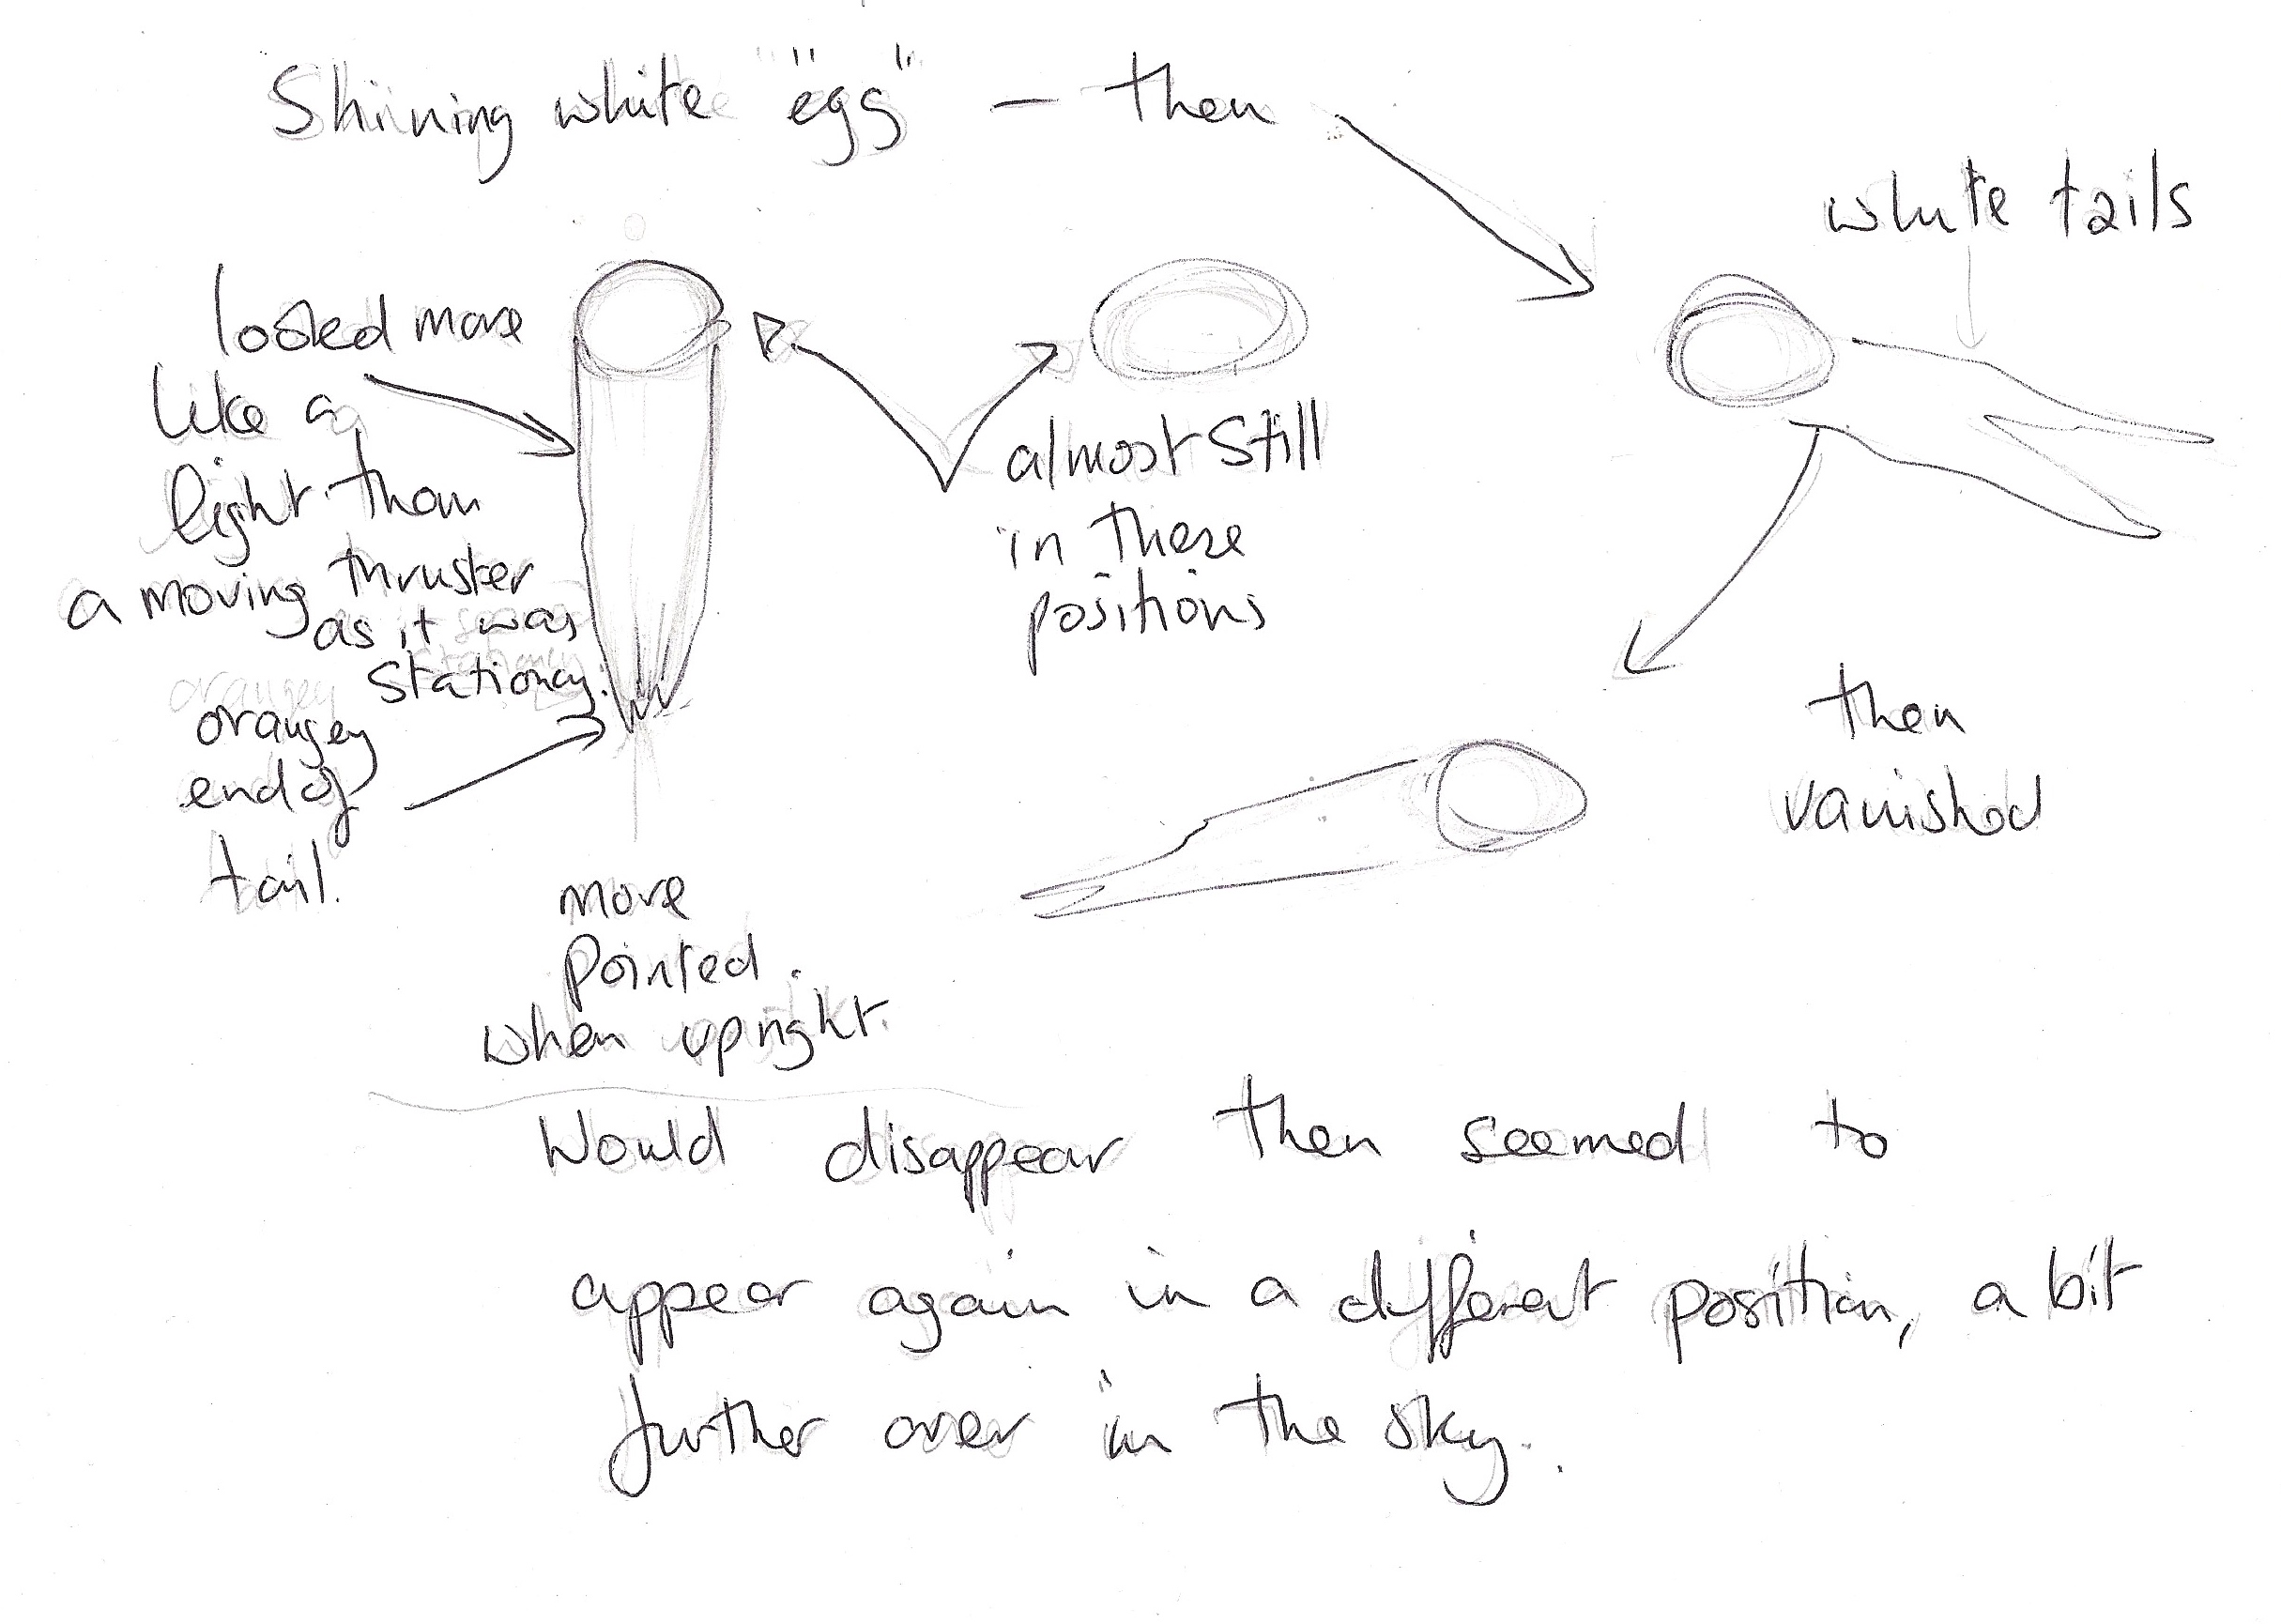 Shining white "egg" — then
white tails
looked more
like a
light than
a moving thruster
as it was
stationary.
orangey
end of
tail.
almost still
in these
positions
then
vanished
more
pointed.
when upright.
Would disappear then seemed to
appear again in a different position, a bit
further over in the sky.